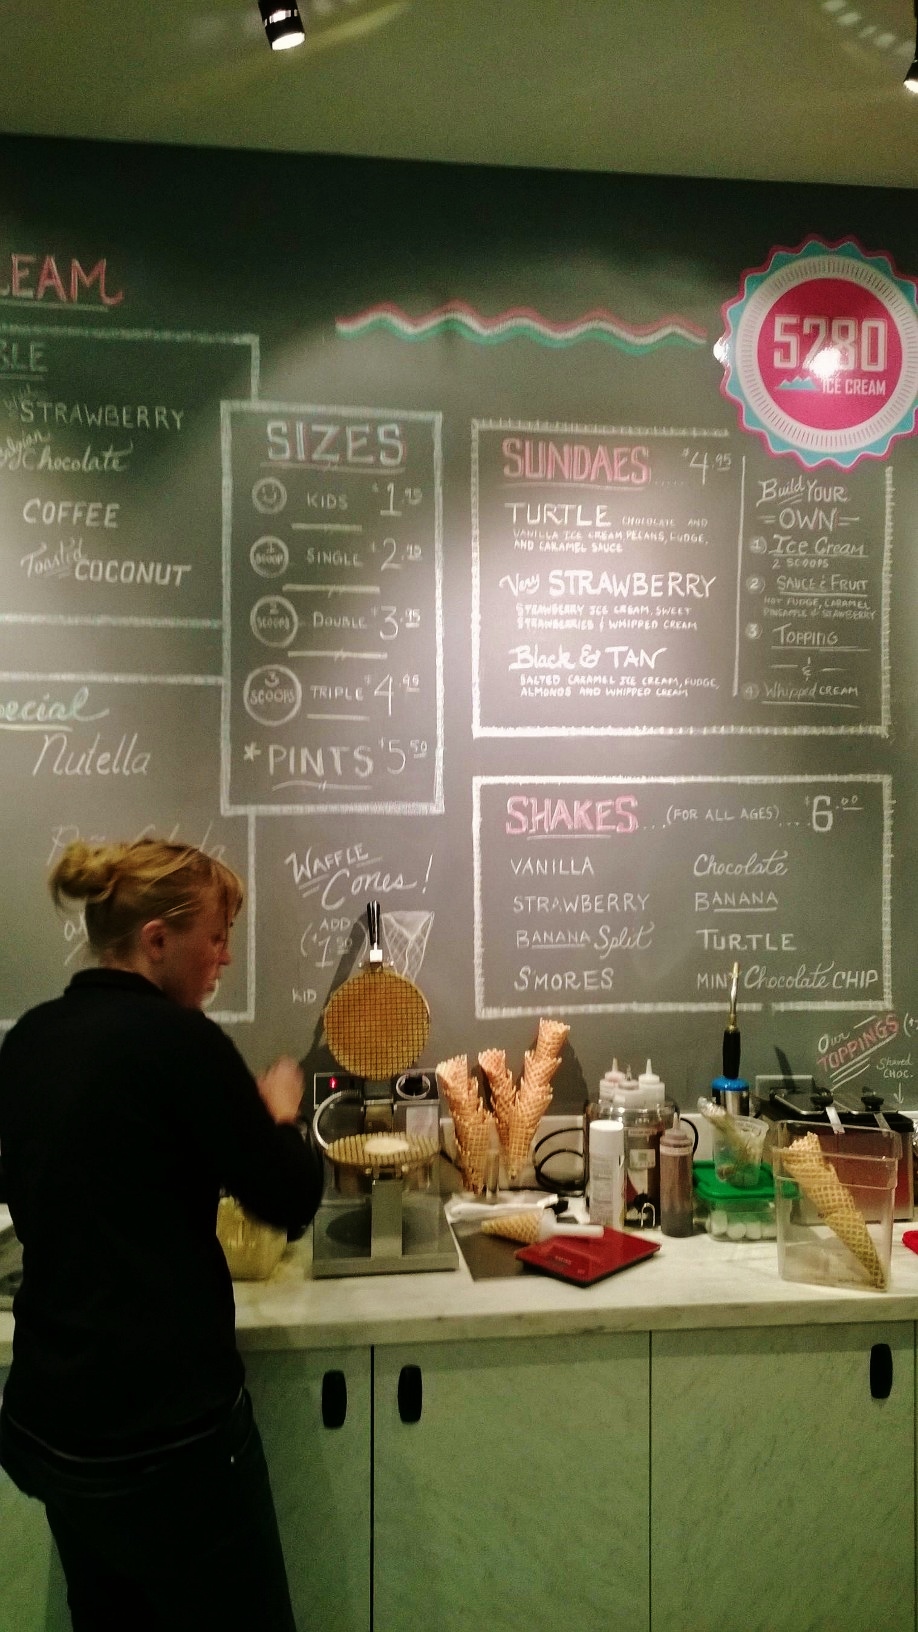 EAM
BLE
STRAWBERRY
Belgian
Chocolate
COFFEE
Toasted
COCONUT
ecial
Nutella
SIZES
KIDS $1.95
1 SCOOP SINGLE $2.95
2 SCOOPS DOUBLE $3.95
3 SCOOPS TRIPLE $4.95
*PINTS $5.50
WAFFLE
Cones!
ADD
KID
SUNDAES ..... $4.95
TURTLE CHOCOLATE AND
VANILLA ICE CREAM, PECANS, FUDGE,
AND CARAMEL SAUCE
Very STRAWBERRY
STRAWBERRY ICE CREAM, SWEET
STRAWBERRIES & WHIPPED CREAM
Black & TAN
SALTED CARAMEL ICE CREAM, FUDGE,
ALMONDS AND WHIPPED CREAM
5280
ICE CREAM
Build YOUR
=OWN=
① Ice Cream
2 SCOOPS
② SAUCE & FRUIT
HOT FUDGE, CARAMEL,
PINEAPPLE & STRAWBERRY
③ TOPPING
&
④ Whipped CREAM
SHAKES...(FOR ALL AGES).... $6.00
VANILLA Chocolate
STRAWBERRY BANANA
BANANA Split TURTLE
S'MORES MINT Chocolate CHIP
Our
TOPPINGS
Shaved
CHOC.